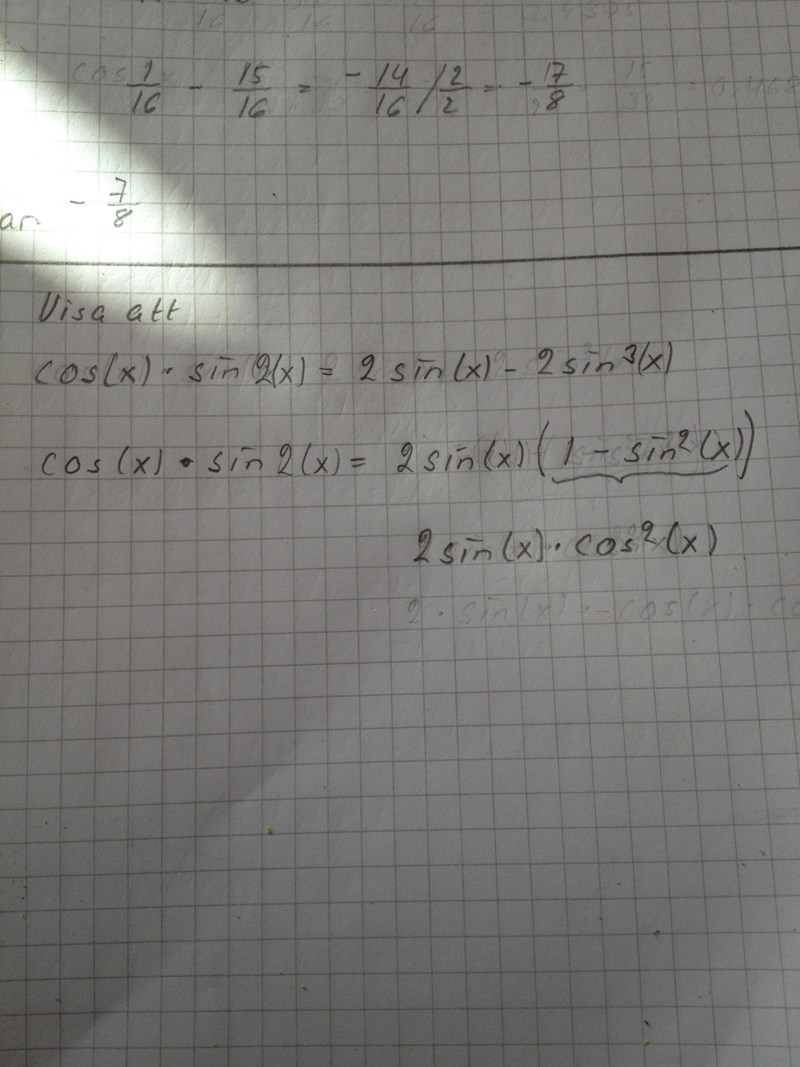 1/16 - 15/16 = - 14/16 / 2/2 = - 17/8
- 7/8
Visa att
cos(x) · sin2(x) = 2 sin(x) - 2 sin³(x)
cos(x) · sin2(x) = 2 sin(x) (1 - sin²(x))
2 sin(x) · cos²(x)